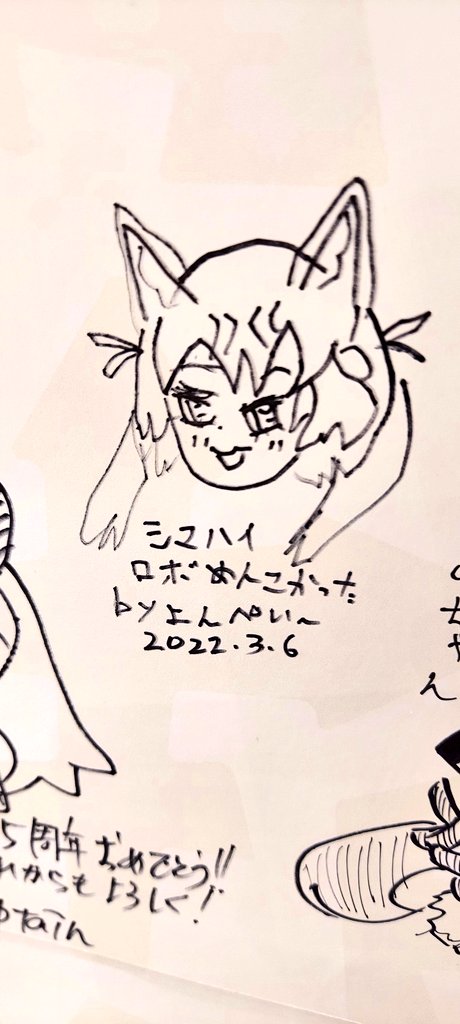 シマハイ
ロボめんこかった
by よんぺい〜
2022.3.6
5周年おめでとう!!
れからもよろしく!
ち
ゃ
ん